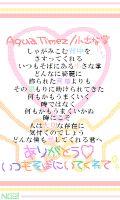 Aqua Timez/小さな掌
しゃがみこむ背中を
さすってくれる
いつもそばにある小さな掌
どんなに綺麗に
飾られた言葉よりも
その温もりに助けられてきた
何もかもうまくいく
時ではなく
何もかもうまくいかぬ
時にこそ
人は大切な存在に
気付くのでしょう
どんな僕も愛してくれる君へ
ありがとう
いつもそばにいてくれて